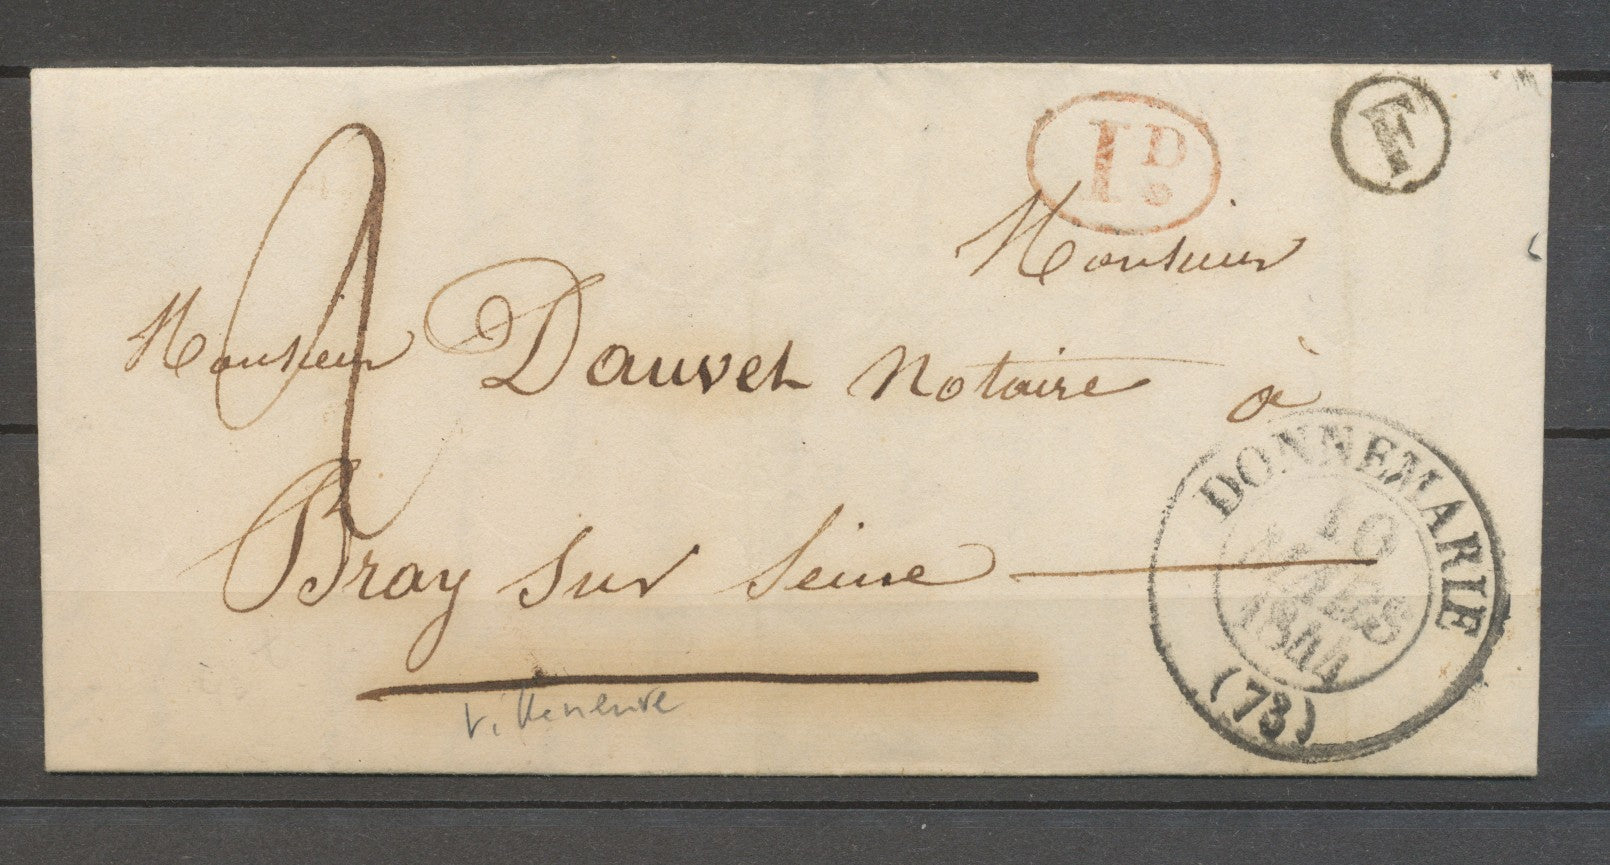 1D
F
Monsieur
Monsieur Dauvet Notaire à
Bray sur Seine
DONNEMARIE
10
MARS
1844
(73)
Villeneuve